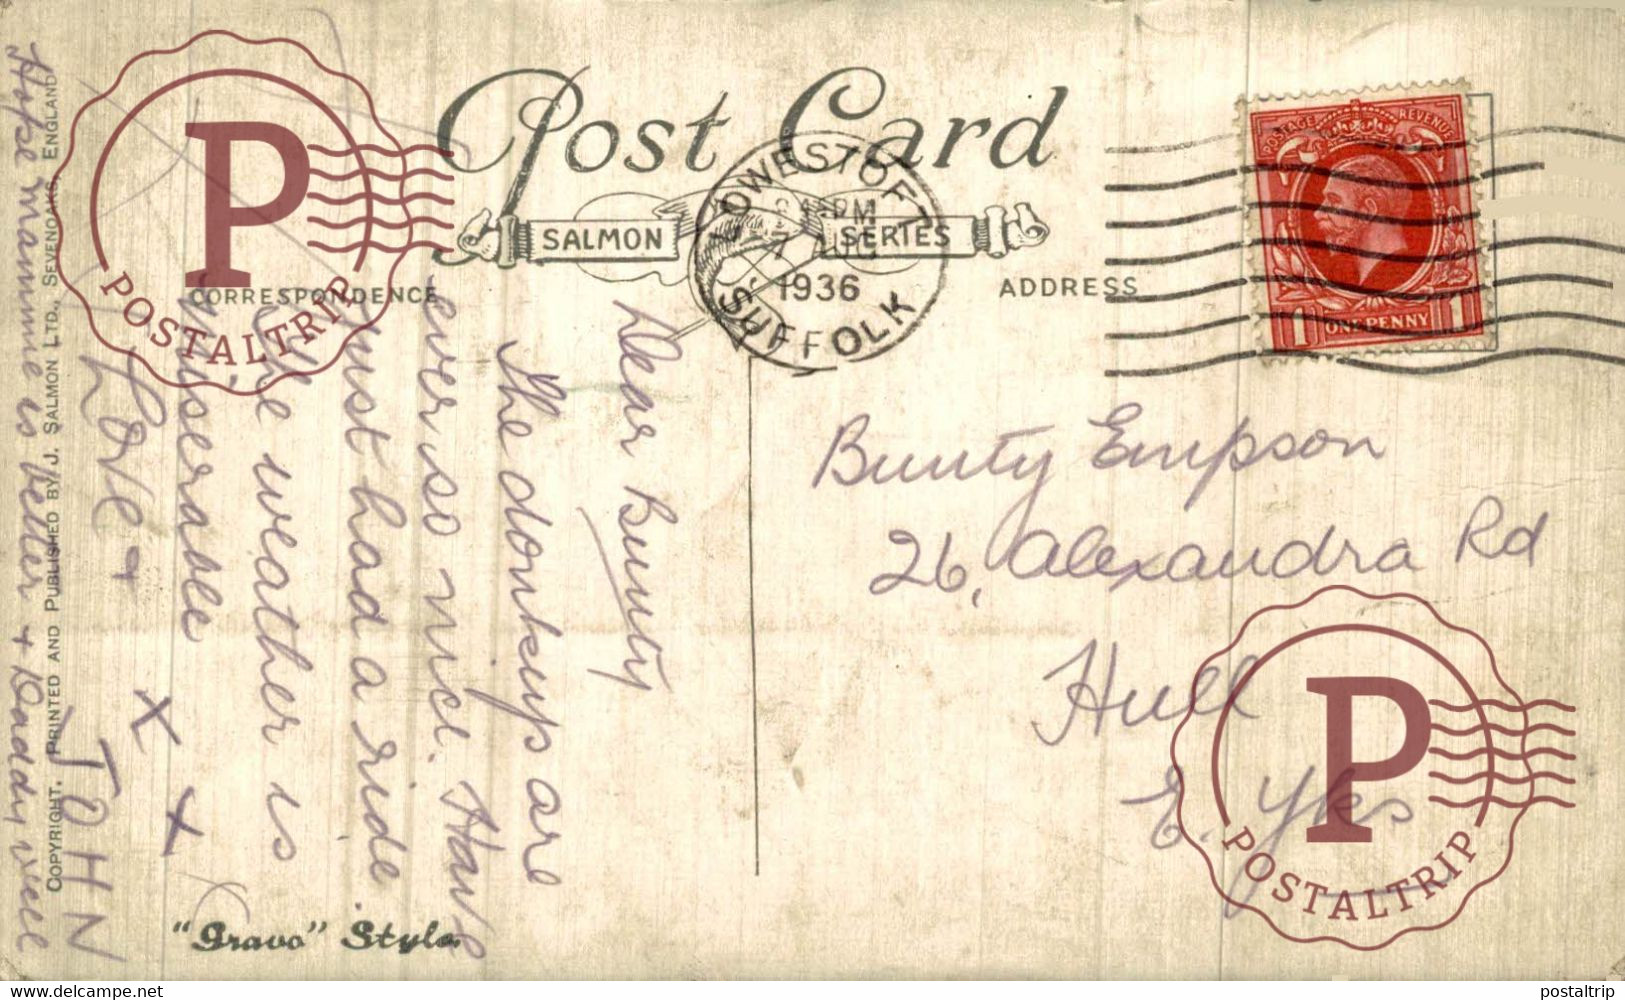 Post Card
SALMON SERIES
CORRESPONDENCE
ADDRESS
LOWESTOFT
PM
7 AUG
1936
SUFFOLK
POSTAGE REVENUE
1 ONE PENNY 1
Dear Bunty
The donkeys are
ever so nice. Have
just had a ride
The weather is
miserable
Love
x x
JOHN
Hope mammie is better + Daddy well
Bunty Empson
26, Alexandra Rd
Hull
E. Yks
"Gravo" Style.
COPYRIGHT. PRINTED AND PUBLISHED BY J. SALMON LTD., SEVENOAKS, ENGLAND
P
POSTALTRIP
P
POSTALTRIP
www.delcampe.net
postaltrip